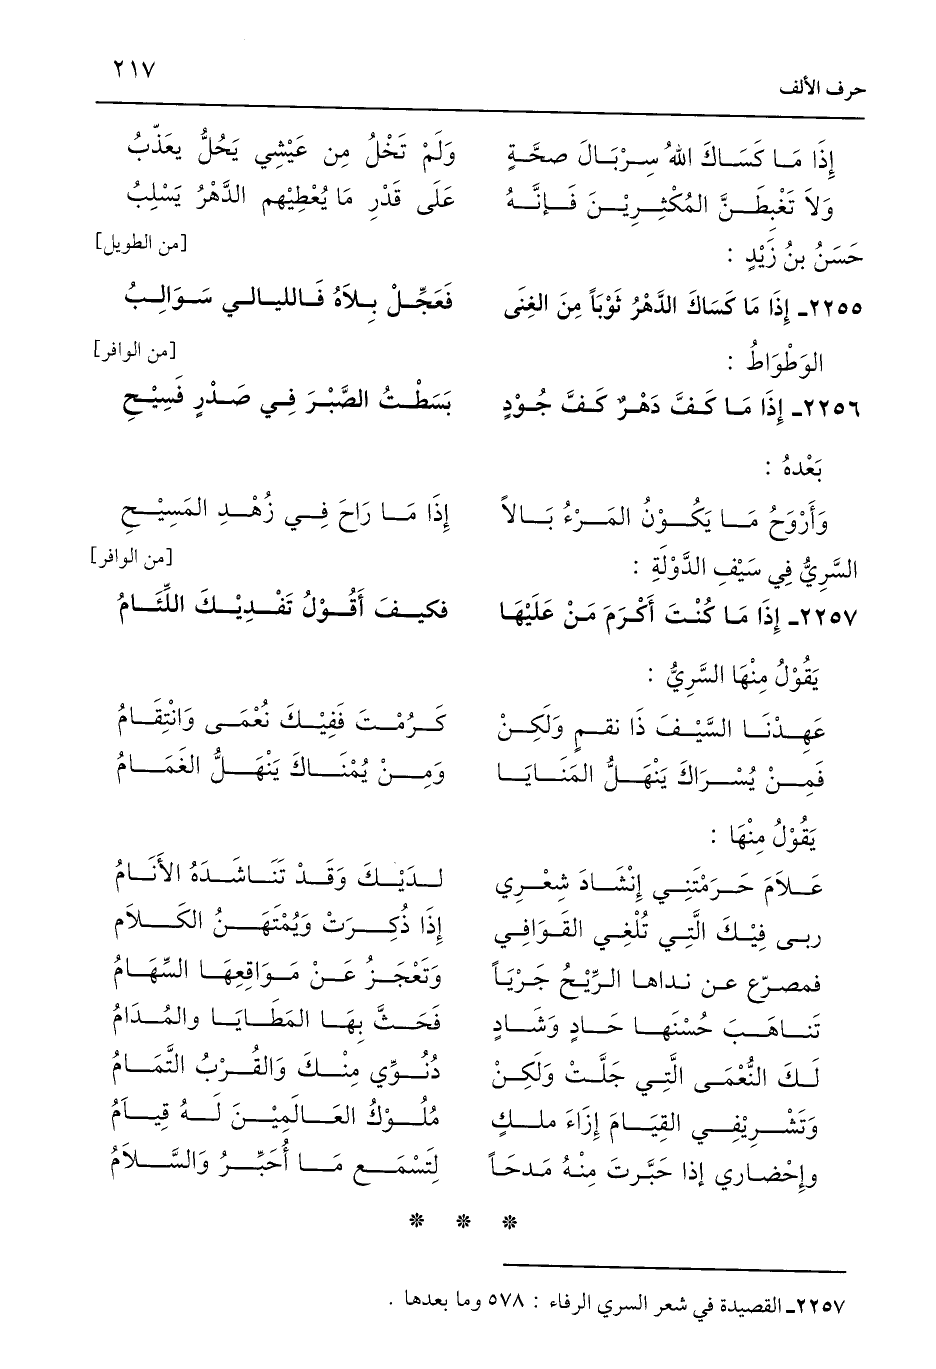 حرف الألف ٢١٧
إِذَا مَا كَسَاكَ اللهُ سِرْبَالَ صحَّةٍ وَلَمْ تَخْلُ مِن عَيْشِي يَحُلُّ يعَذّبُ
وَلاَ تَغْبِطَنَّ المُكْثِرِيْنَ فَإنَّهُ عَلَى قَدْرِ مَا يُعْطِيْهِم الدَّهْرُ يَسْلِبُ
حَسَنُ بنُ زَيْدٍ : [من الطويل]
٢٢٥٥ـ إِذَا مَا كَسَاكَ الدَّهْرُ ثَوْبَاً مِنَ الغِنَى فَعَجِّلْ بِلاَهُ فَالليالي سَوَالِبُ
الوَطْوَاطُ : [من الوافر]
٢٢٥٦ـ إِذَا مَا كَفَّ دَهْرٌ كَفَّ جُوْدٍ بَسَطْتُ الصَّبْرَ فِي صَدْرٍ فَسِيْحِ
بَعْدهُ :
وَأَرْوَحُ مَا يَكُوْنُ المَرْءُ بَالاً إِذَا مَا رَاحَ فِي زُهْدِ المَسِيْحِ
السَّرِيُّ فِي سَيْفِ الدَّوْلَةِ : [من الوافر]
٢٢٥٧ـ إِذَا مَا كُنْتَ أَكْرَمَ مَنْ عَلَيْهَا فكيفَ أَقُوْلُ تَفْدِيْكَ اللِّئَامُ
يَقُوْلُ مِنْهَا السَّرِيُّ :
عَهِدْنَا السَّيْفَ ذَا نقمٍ وَلَكِنْ كَرُمْتَ فَفِيْكَ نُعْمَى وَانْتِقَامُ
فَمِنْ يُسْرَاكَ يَنْهَلُّ المَنَايَا وَمِنْ يُمْنَاكَ يَنْهَلُّ الغَمَامُ
يَقُوْلُ مِنْهَا :
عَلاَمَ حَرَمْتَنِي إِنْشَادَ شِعْرِي لَدَيْكَ وَقَدْ تَنَاشَدَهُ الأَنَامُ
ربى فِيْكَ الَّتِي تُلْغِي القَوَافِي إِذَا ذُكِرَتْ وَيُمْتَهَنُ الكَلاَمِ
فمصرّع عن نداها الرِّيْحُ جَرْيَاً وَتَعْجَزُ عَنْ مَوَاقِعِهَا السِّهَامُ
تَنَاهَبَ حُسْنهَا حَادٍ وَشَادٍ فَحَثَّ بِهَا المَطَايَا والمُدَامُ
لَكَ النُّعْمَى الَّتِي جَلَّتْ وَلَكِنْ دُنُوِّي مِنْكَ وَالقُرْبُ التَّمَامُ
وَتَشْرِيْفِي القِيَامَ إِزَاءَ ملكٍ مُلُوْكُ العَالَمِيْنَ لَهُ قِيَامُ
وإِحْضَارِي إذا حَبَّرتَ مِنْهُ مَدحَاً لِتَسْمَعِ مَا أُحَبِّرُ وَالسَّلاَمُ
* * *
٢٢٥٧ـ القصيدة في شعر السري الرفاء : ٥٧٨ وما بعدها .